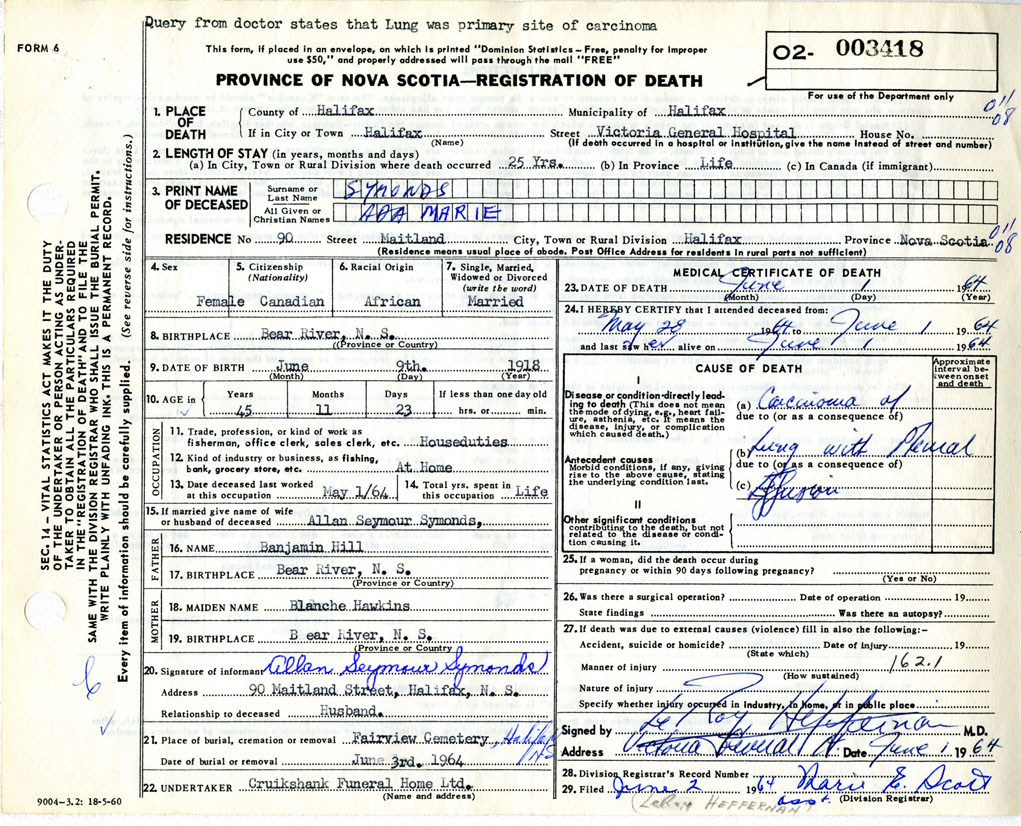 Query from doctor states that Lung was primary site of carcinoma
FORM 6
This form, if placed in an envelope, on which is printed "Dominion Statistics—Free, penalty for improper
use $50," and properly addressed will pass through the mail "FREE"
O2- 003418
PROVINCE OF NOVA SCOTIA—REGISTRATION OF DEATH
For use of the Department only
SEC. 14 – VITAL STATISTICS ACT MAKES IT THE DUTY
OF THE UNDERTAKER OR PERSON ACTING AS UNDER-
TAKER TO OBTAIN ALL THE PARTICULARS REQUIRED
IN THE "REGISTRATION OF DEATH" AND TO FILE THE
SAME WITH THE DIVISION REGISTRAR WHO SHALL ISSUE THE BURIAL PERMIT.
WRITE PLAINLY WITH UNFADING INK. THIS IS A PERMANENT RECORD.
Every item of information should be carefully supplied. (See reverse side for instructions.)
1. PLACE OF DEATH
County of Halifax Municipality of Halifax
011
08
If in City or Town Halifax Street Victoria General Hospital House No.
(Name) (If death occurred in a hospital or institution, give the name instead of street and number)
2. LENGTH OF STAY (in years, months and days)
(a) In City, Town or Rural Division where death occurred 25 Yrs. (b) In Province Life (c) In Canada (if immigrant)
3. PRINT NAME OF DECEASED
Surname or Last Name SYMONDS
All Given or Christian Names ADA MARIE
RESIDENCE No 90 Street Maitland City, Town or Rural Division Halifax Province Nova Scotia
011
08
(Residence means usual place of abode. Post Office Address for residents in rural parts not sufficient)
4. Sex 5. Citizenship (Nationality) 6. Racial Origin 7. Single, Married, Widowed or Divorced (write the word)
Female Canadian African Married
8. BIRTHPLACE Bear River, N. S.
(Province or Country)
9. DATE OF BIRTH June 9th. 1918
(Month) (Day) (Year)
10. AGE in Years Months Days If less than one day old
45 11 23 hrs. or min.
OCCUPATION
11. Trade, profession, or kind of work as
fisherman, office clerk, sales clerk, etc. Houseduties
12. Kind of industry or business, as fishing,
bank, grocery store, etc. At Home
13. Date deceased last worked at this occupation May 1/64 14. Total yrs. spent in this occupation Life
15. If married give name of wife
or husband of deceased Allan Seymour Symonds,
FATHER
16. NAME Banjamin Hill
17. BIRTHPLACE Bear River, N. S.
(Province or Country)
MOTHER
18. MAIDEN NAME Blanche Hawkins
19. BIRTHPLACE B ear River, N. S.
(Province or Country)
20. Signature of informant Allan Seymour Symonds
Address 90 Maitland Street, Halifax, N. S.
Relationship to deceased Husband.
21. Place of burial, cremation or removal Fairview Cemetery, Halifax NS
Date of burial or removal June 3rd. 1964
22. UNDERTAKER Cruikshank Funeral Home Ltd.
(Name and address)
9004-3.2: 18-5-60
MEDICAL CERTIFICATE OF DEATH
23. DATE OF DEATH June 1 1964
(Month) (Day) (Year)
24. I HEREBY CERTIFY that I attended deceased from:
May 28 1964 to June 1 1964
and last saw her alive on June 1 1964
CAUSE OF DEATH
Approximate interval between onset and death
I
Disease or condition-directly lead-
ing to death (This does not mean
the mode of dying, e.g., heart fail-
ure, asthenia, etc. It means the
disease, injury, or complication
which caused death.)
(a) Carcinoma of
due to (or as a consequence of)
Antecedent causes
Morbid conditions, if any, giving
rise to the above cause, stating
the underlying condition last.
(b) Lung with Pleural
due to (or as a consequence of)
(c) Effusion
II
Other significant conditions
contributing to the death, but not
related to the disease or condi-
tion causing it.
25. If a woman, did the death occur during
pregnancy or within 90 days following pregnancy?
(Yes or No)
26. Was there a surgical operation? Date of operation 19
State findings Was there an autopsy?
27. If death was due to external causes (violence) fill in also the following:–
Accident, suicide or homicide? Date of injury 19
(State which)
Manner of injury 162.1
(How sustained)
Nature of injury
Specify whether injury occurred in Industry, in home, or in public place
Signed by Le Roy Heffernan M.D.
Address Victoria General H Date June 1 1964
28. Division Registrar's Record Number
29. Filed June 2 1964 Marie E. Scott
asst. (Division Registrar)
(LeRoy HEFFERNAN)